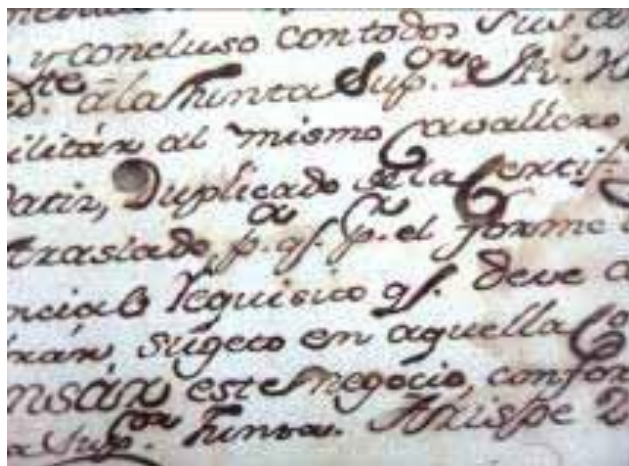 y concluso con todos sus
te. â la Junta Sup.or de R.l H
ilitár al mismo Cavallero
Duplicado de la Certif.
traslade, p.a q.e p.r el forme
ncial requisito q.e deve
rán sugeto en aquella
nsár este negocio, confor
a Sup.or Junta. Arispe 2